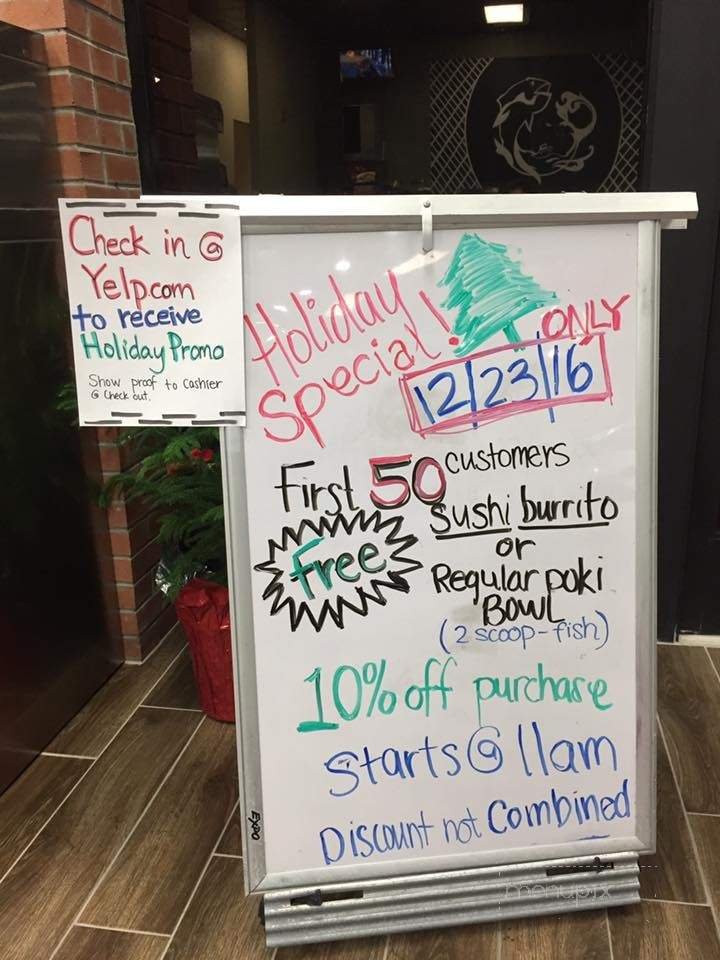 Check in @
Yelp.com
to receive
Holiday Promo
Show proof to Cashier
@ Check out.
Holiday
Special!
ONLY
12/23/16
First 50 customers
Free
Sushi burrito
or
Regular poki
BOWL
(2 scoop-fish)
10% off purchase
Starts @ 11am
Discount not Combined
EXPO
menupix